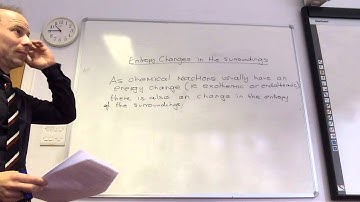 Entropy Changes in the Surroundings
As chemical reactions usually have an
energy change (ie exothermic or endothermic)
there is also an change in the entropy
of the surroundings.